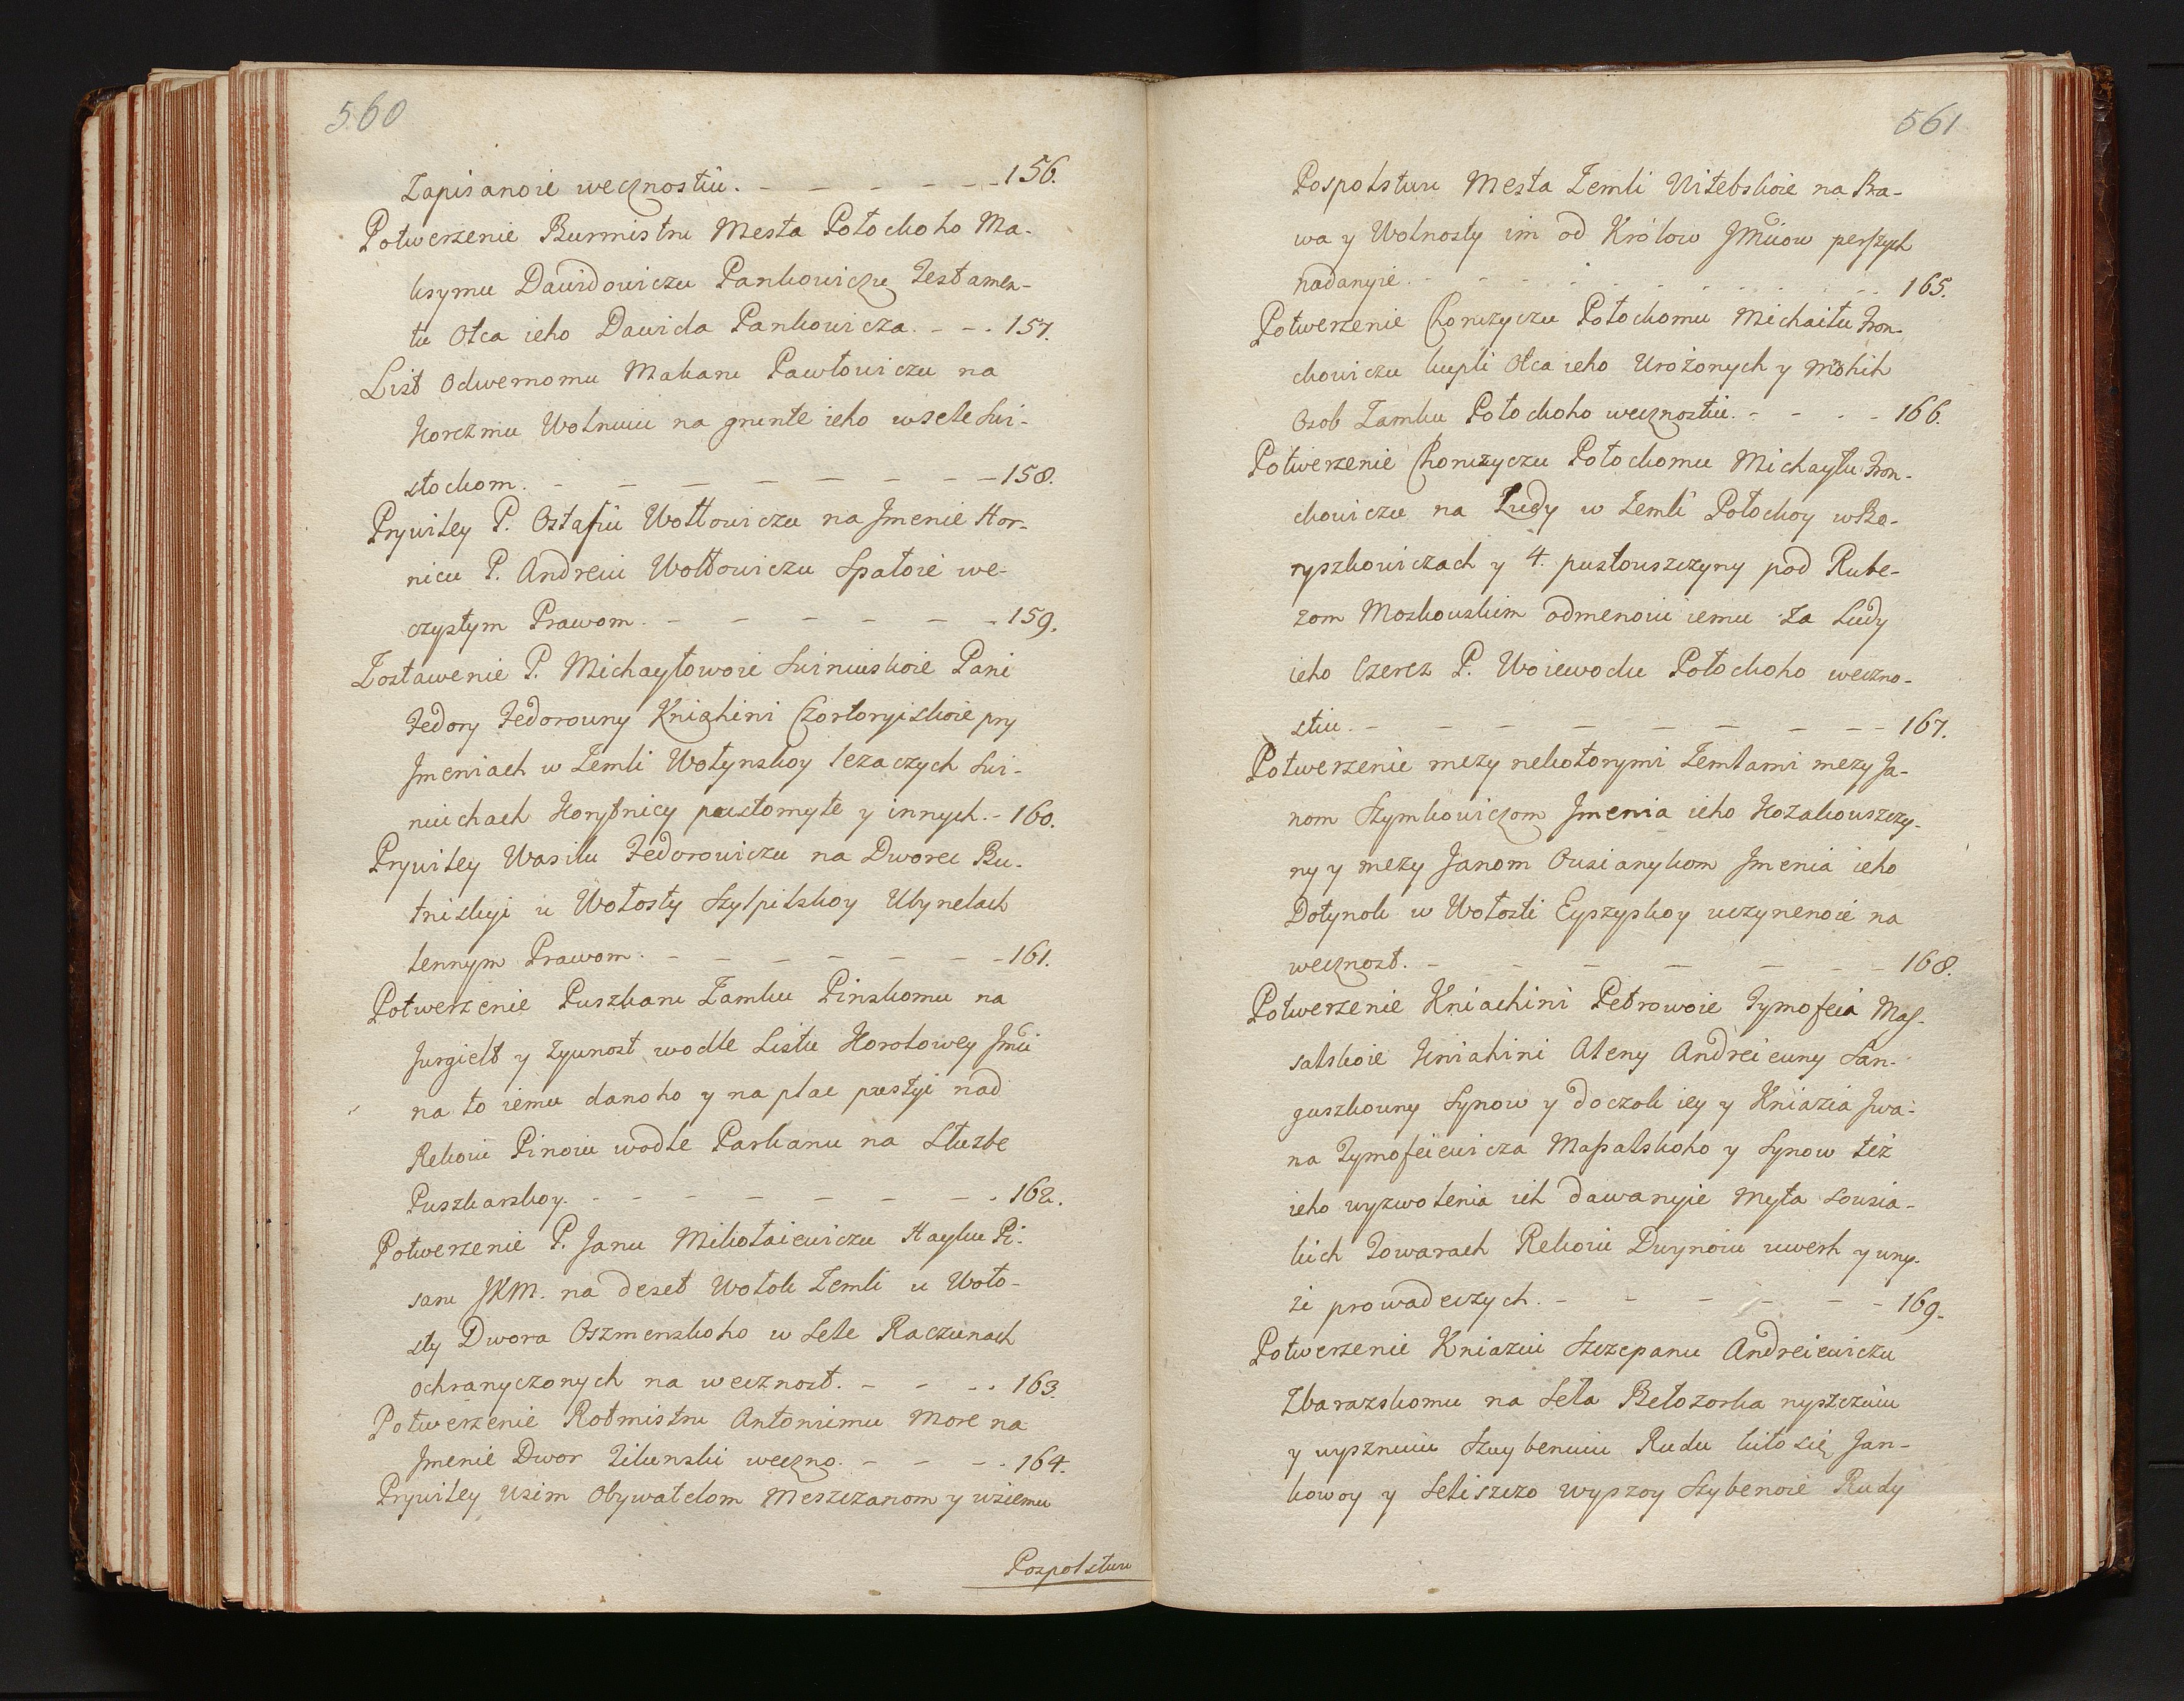 560
Zapisanoie wecznostiu. - - - - - - 156.
Potwerzenie Burmistru Mesta Połockoho Ma-
ksymu Dawidowiczu Pankowiczu Testamen-
tu Otca ieho Dawida Pankowicza. - - . 157.
List Odwernomu Makaru Pawłowiczu na
Korczmu Wolnuiu na grunte ieho w Sele Swi-
słockom. - - - - - - - - 158.
Prywiley P. Ostafiu Wołłowiczu na Jmenie Hor-
nicu P. Andreiu Wołłowiczu Spałoie we-
czystym Prawom. - - - - - - 159.
Zostawenie P. Michayłowoie Swiniuskoie Pani
Fedory Fedorowny Kniahini Czortoryiskoie pry
Jmeniach w Zemli Wołynskoy lezaczych Swi-
niuchach Korytnicy pustomyte y innych. - 160.
Prywiley Wasilu Fedorowiczu na Dworec Bu-
tniskyi u Wołosty Szylpilskoy Ulynelach
lennym Prawom. - - - - - - - 161.
Potwerzenie Puszkaru Zamku Pinskomu na
Jurgielt y zywnost wodle Listu Korolowey Jmći
na to iemu danoho y na plac pustyi nad
Rekoiu Pinoiu wodle Parkanu na Służbe
Puszkarskoy. - - - - - - - . 162.
Potwerzenie P. Janu Mikołaiewiczu Hayku Pi-
saru JKM. na deset Wołok Zemli u Woło-
sty Dwora Oszmenskoho w Sele Raczunach
ochranyczonych na wecznost. - - - . 163.
Potwerzenie Rotmistru Antoniemu More na
Jmenie Dwor Zilunski weczno. - - - . 164.
Prywiley Usim Obywatelom Meszczanom y wsiemu
Pospolstwu
561
Pospolstwu Mesta Zemli Witebskoie na Pra-
wa y Wolnosty im od Królow JMciow perszych
nadanyie. - - - - - - - - 165.
Potwerzenie Choruzyczu Połockomu Michaiłu Fron-
ckowiczu kupli Otca ieho Urożonych y mnohih
Osob Zamku Połockoho wecznostiu. - - - - 166.
Potwerzenie Choruzyczu Połockomu Michayłu Fron-
ckowiczu na Ludy w Zemli Połockoy w Bo-
ryszkowiczach y 4. pustowszczyny pod Rube-
zom Moskowskim odmenoiu iemu za Ludy
ieho Czerez P. Woiewodu Połockoho weczno-
stiu. - - - - - - - - 167.
Potwerzenie mezy nekotorymi Zemlami mezy Ja-
nom Szymkowiczom Jmenia ieho Kozakowszczy-
ny y mezy Janom Owsianykom Jmenia ieho
Dołynok w Wołosti Eyszyskoy uczynenoie na
wecznost. - - - - - - - 168.
Potwerzenie Kniachini Petrowoie Tymofeia Mas-
salskoie Kniahini Aleny Andreiewny San-
guszkowny Synow y doczok iey y Kniazia Jwa-
na Tymofeiewicza Massalskoho y Synow też
ieho wyzwolenia ich dawanyie Myta Sowsia-
kich Towarach Rekoiu Dwynoiu uwerh y uny-
zi prowadeczych. - - - - - - 169.
Potwerzenie Kniaziu Szczepanu Andreiewiczu
Zbarazskomu na Seła Bełozorka nyszczuiu
y wysznuiu Szuybenuiu Rudu Kiłosię Jan-
kowoy y Seliszczo wyszoy Szybenoie Rudy